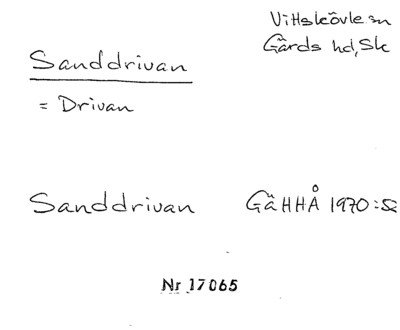 Vittskövle sn
Gärds hd, Sk
Sanddrivan
= Drivan
Sanddrivan GäHHÅ 1970:
Nr 17065